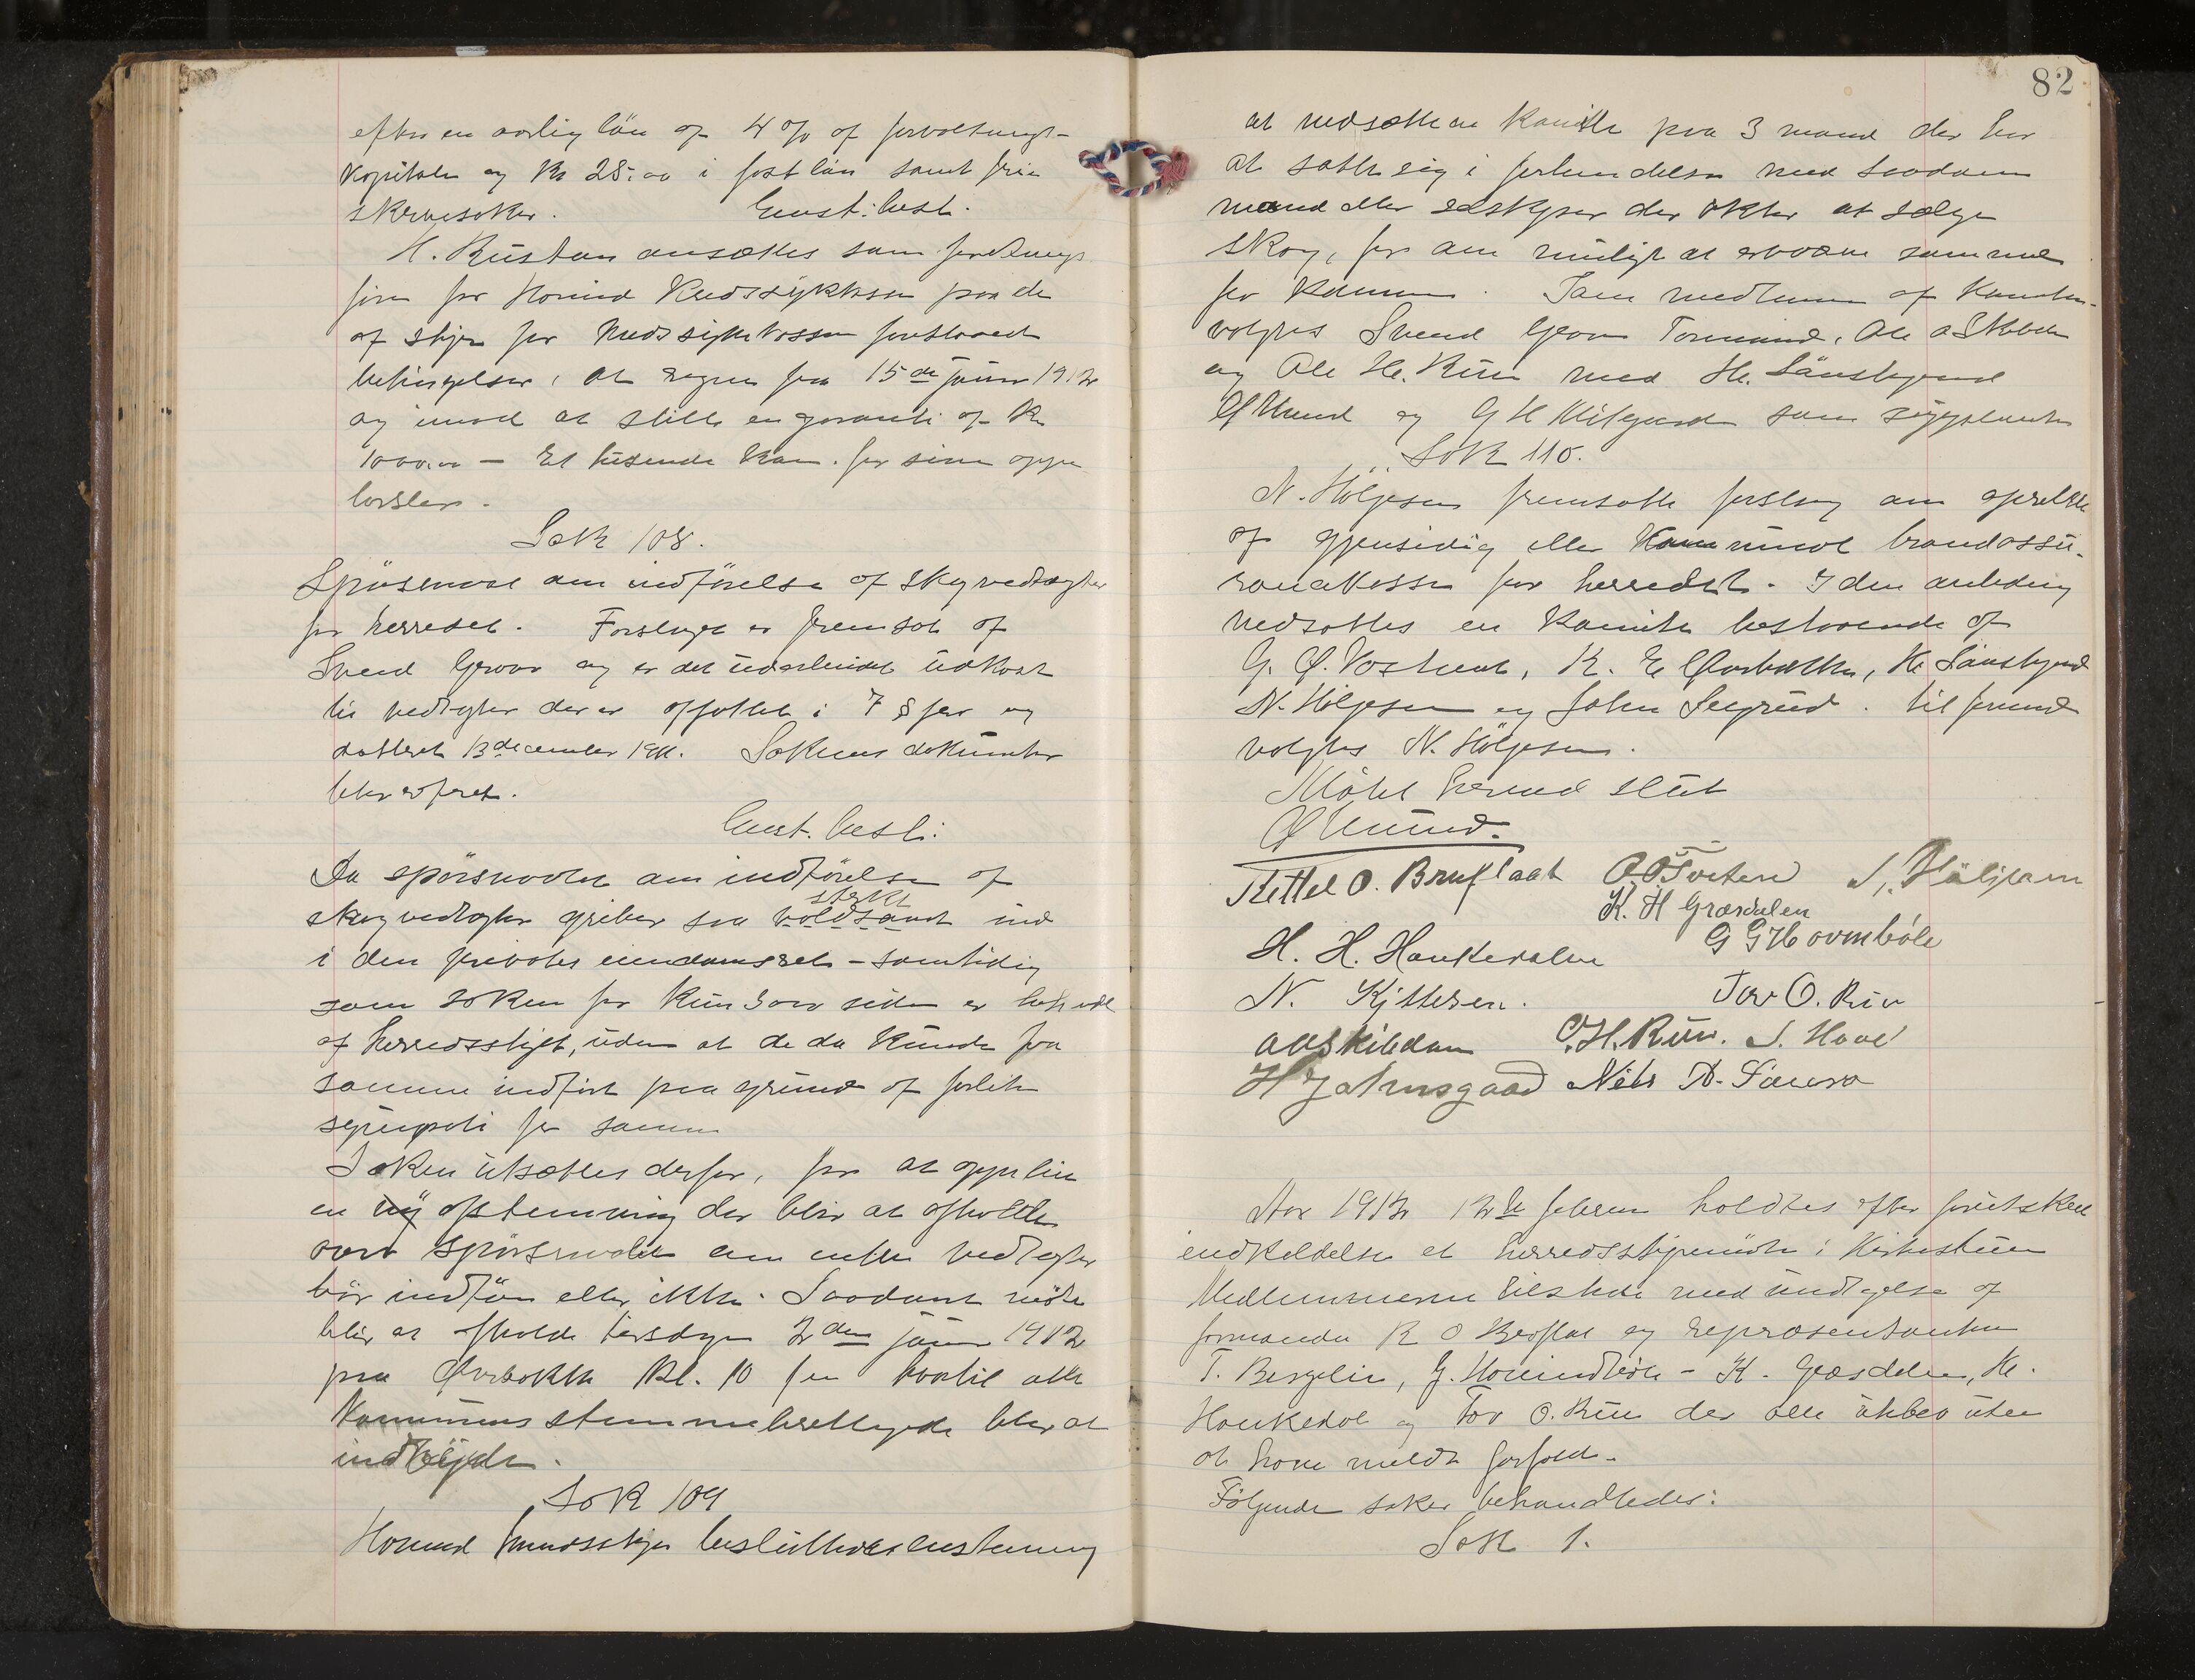 efter en aarlig løn af 4 % af forvaltnings-
kapitalen og Kr 25.00 i fast løn samt frie
skrivesaker. Enst: besl.
H. Rustan ansættes som forretnings
fører for Hovind Kredssykkasse paa de
af styret for Kredssykekassen foreslaaede
betingelser, at regne fra 15de januar 1912
og imod at stille en garanti af Kr
1000.00 — Et tusende Kron. for sine oppe
børsler.
Sak 108.
Spörsmaal om indförelse af skogvedtægter
for herredet. Forslaget er fremsat af
Svend Groven og er det udarbeidet udkast
til vedtægter der er affattet i 7 §fer og
datteret 13de december 1911. Sakens dokumenter
blev refereret.
Enst. besl:
Da spørsmaalet om indförelse af
sterkt
skogvedtægter griber saa voldsomt ind
i den privates eiendomsret – samtidig
som saken for kun 3 aar siden er behandl
af herredsstyret, uden at de da kunde faa
samme indført paa grund af forliten
sympati for samme
Saken utsættes derfor, for at oppta til
en ny afstemning der blir at afholde
over spørsmaalet om enten vedtægter
bör indføres eller ikke. Saadant möte
blir at afholde tirsdagen 2den januar 1912
paa Øverbakken Kl. 10 fm hvortil alle
kommunens stemmeberettigede blir at
indbyde.
Sak 109
Hovind herredsstyre besluttede enstemmig
82
at nedsætte en komite paa 3 mand der har
at sætte sig i forbindelse med saadanne
mænd eller selskaper der økter at sælge
skog, for om muligt at erhverve samme
for kommunen. Som medlemmer af komiteen
valgtes Svend Groven formand, Ole O Skibdn
og Ole H. Ruen med H. Sönstegaard
Ø Unund og G H Midgaarden som suppleanter
Sak 110.
N. Hölgesen fremsatte forslag om oprettelse
af gjensidig eller kommunal brandassu-
rancekasse for herredet. I den anledning
nedsattes en komite bestaaende af
G. Ø. Voshunt, K. E Øverbakken, H. Sönstegaard
N. Hölgesen og John Segrud. til formand
valgtes N. Hölgesen.
Mötet hermed slut
Ø Unund.
Kittel O. Bruflaat O O Tveten N. Hölgesen
K. H Græsdalen
H. H. Haukedalen G G Hovmböle
N. Kjittelsen. Tov O. Rue
O O Skibdam O. H. Rue. S. Hovd
H Jahnsgaard Nils A. Saurs
Aar 1912 12te februar holdtes efter forutskeet
indkaldelse et herredsstyremöte i Kirkestuen
Medlemmerne tilstede med undtagelse af
formanden K O Bruflat og repræsentanterne
T. Bergelin, G. Hovindböle – K. Græsdalen, H.
Haukedal og Tov O. Rue der alle utblev uten
at have meldt forfald.
Følgende saker behandledes:
Sak 1.